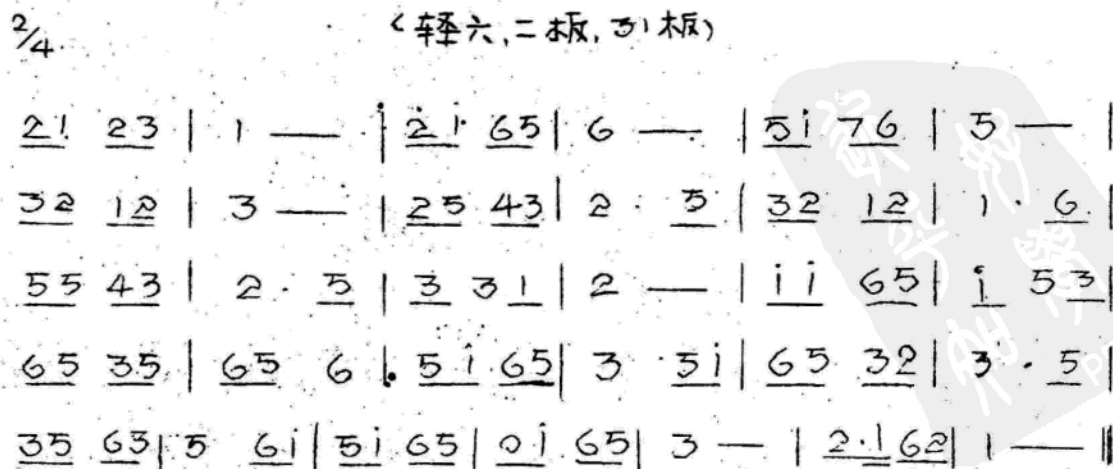 2/4 （轻六，二板，引板）
21 23 | 1 — | 2̇1̇ 65 | 6 — | 51̇ 76 | 5 — |
32 12 | 3 — | 25 43 | 2 · 5 | 32 12 | 1 · 6 |
55 43 | 2 · 5 | 3 3 1 | 2 — | 1̇1̇ 65 | 1̇ 5 3 |
65 35 | 65 6 | 51̇ 65 | 3 51̇ | 65 32 | 3 · 5 |
35 63 | 5 61̇ | 51̇ 65 | 01̇ 65 | 3 — | 2·1 62 | 1 — ‖